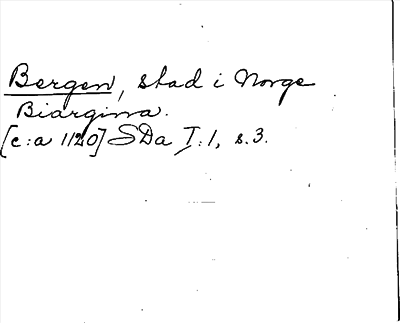 Bergen, stad i Norge
Biargina.
[c:a 1120] SDa I:1, s.3.